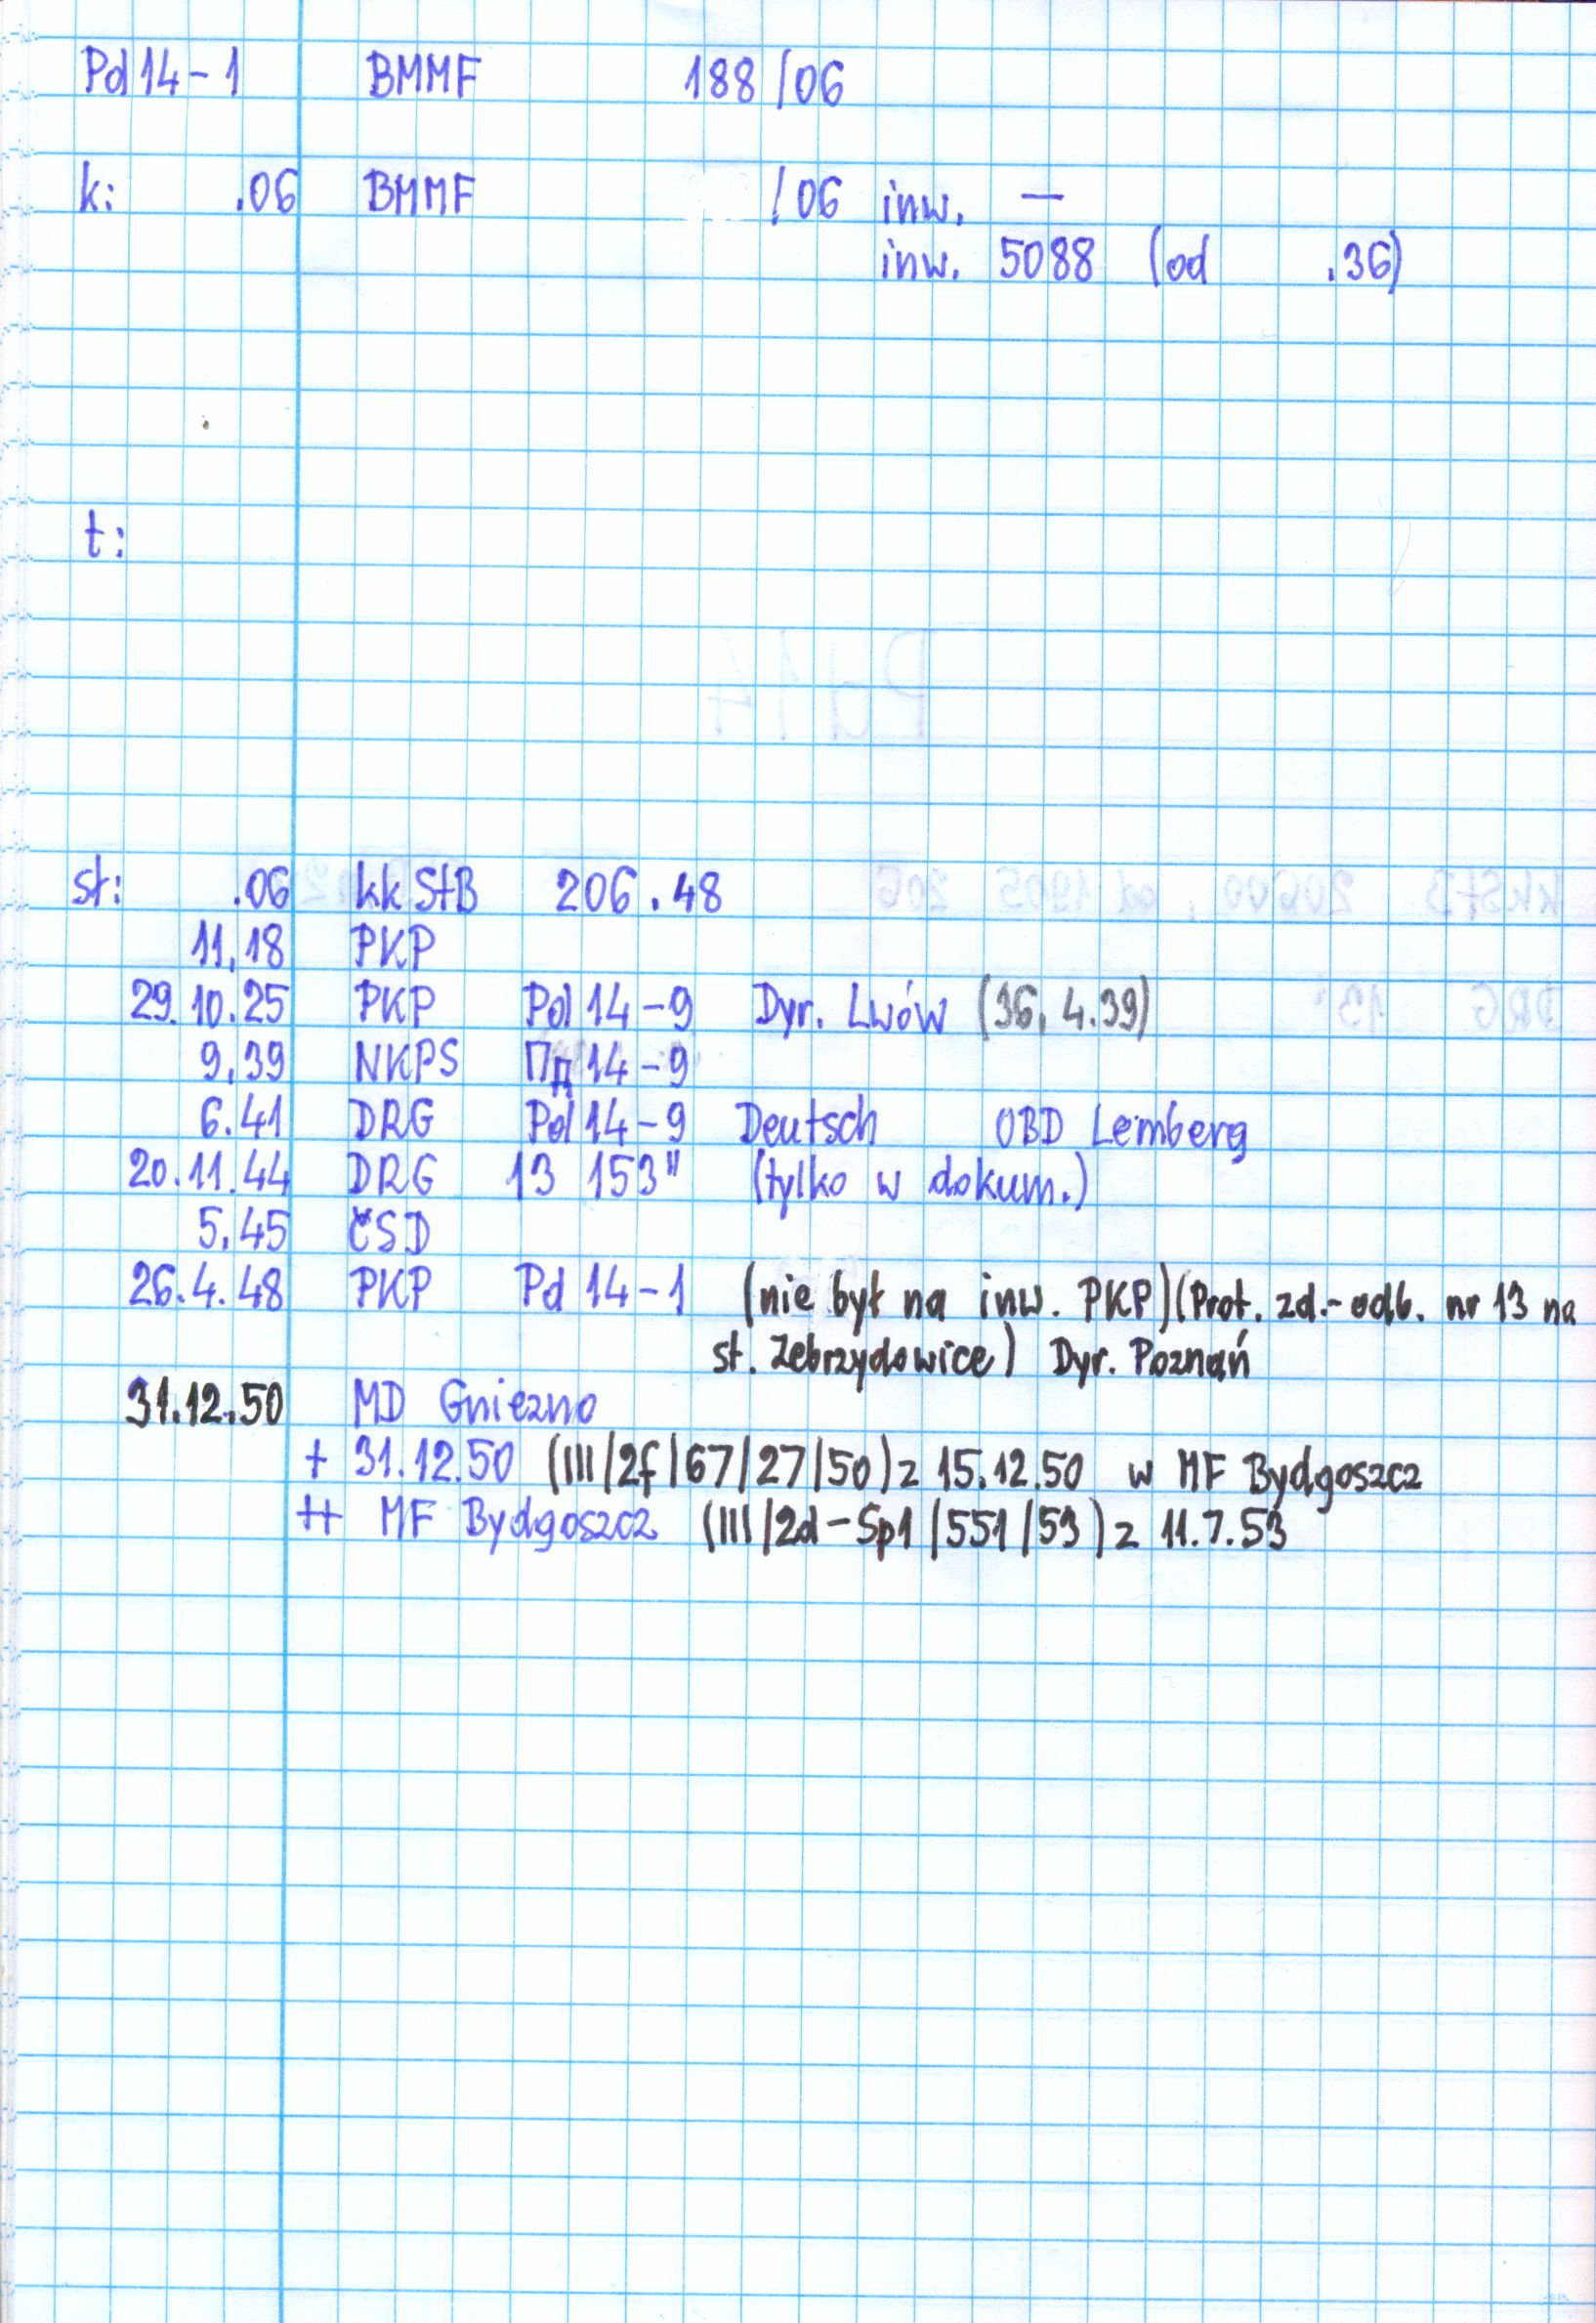 Pd 14-1 BMMF 188/06
k: .06 BMMF /06 inw. —
inw. 5088 (od .36)
t:
st: .06 kkStB 206.48
11.18 PKP
29.10.25 PKP Pd 14-9 Dyr. Lwów (36, 4.39)
9.39 NKPS Пд 14-9
6.41 DRG Pd 14-9 Deutsch OBD Lemberg
20.11.44 DRG 13 153" (tylko w dokum.)
5.45 ČSD
26.4.48 PKP Pd 14-1 (nie był na inw. PKP) (Prot. zd.-odb. nr 13 na
st. Zebrzydowice) Dyr. Poznań
31.12.50 MD Gniezno
+ 31.12.50 (III/2f/67/27/50) z 15.12.50 w MF Bydgoszcz
++ MF Bydgoszcz (III/2d-Sp1/551/53) z 11.7.53